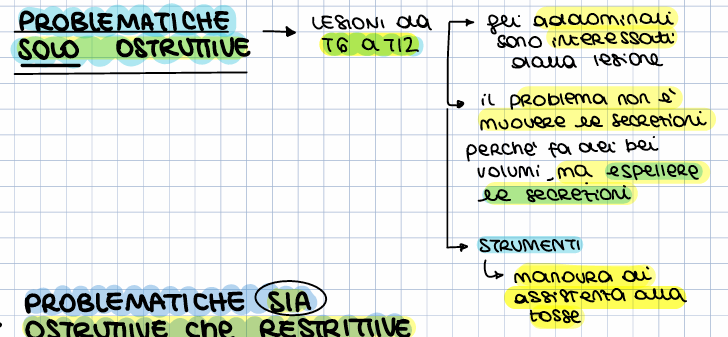 PROBLEMATICHE
SOLO OSTRUTIVE
LESIONI da
T6 a T12
gli addominali
sono interessati
dalla lesione
il problema non è
muovere le secrezioni
perché fa dei bei
volumi, ma espellere
le secrezioni
STRUMENTI
manovra di
assistenza alla
tosse
PROBLEMATICHE SIA
OSTRUTIVE che RESTRITIVE